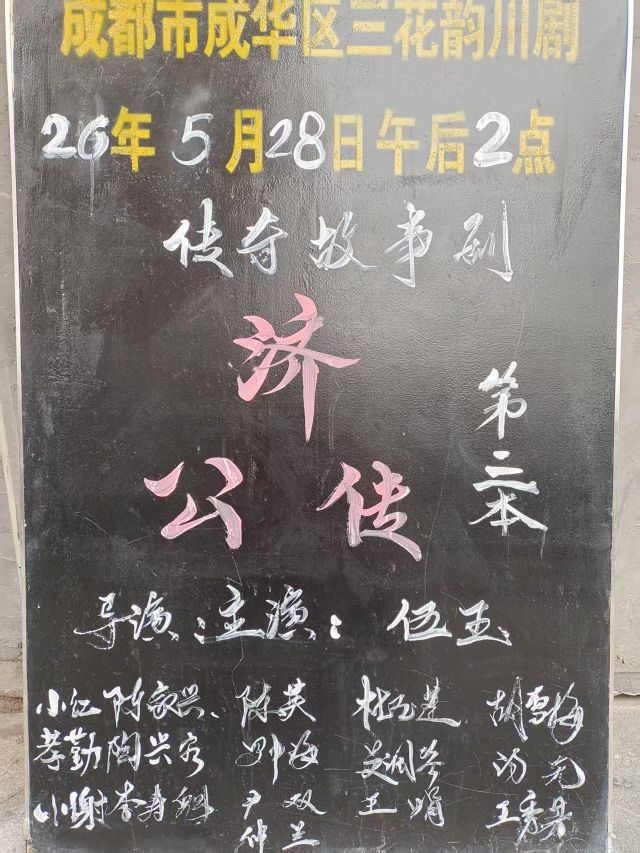 成都市成华区三花韵川剧
26年5月28日午后2点
传奇故事剧
济
公传
第二本
导演:主演:伍玉
小红 陈家兴、陈英 胡雪梅
孝勤 陶兴容 罗海
小谢 李寿 尹双 王娟 王秀果
仲兰